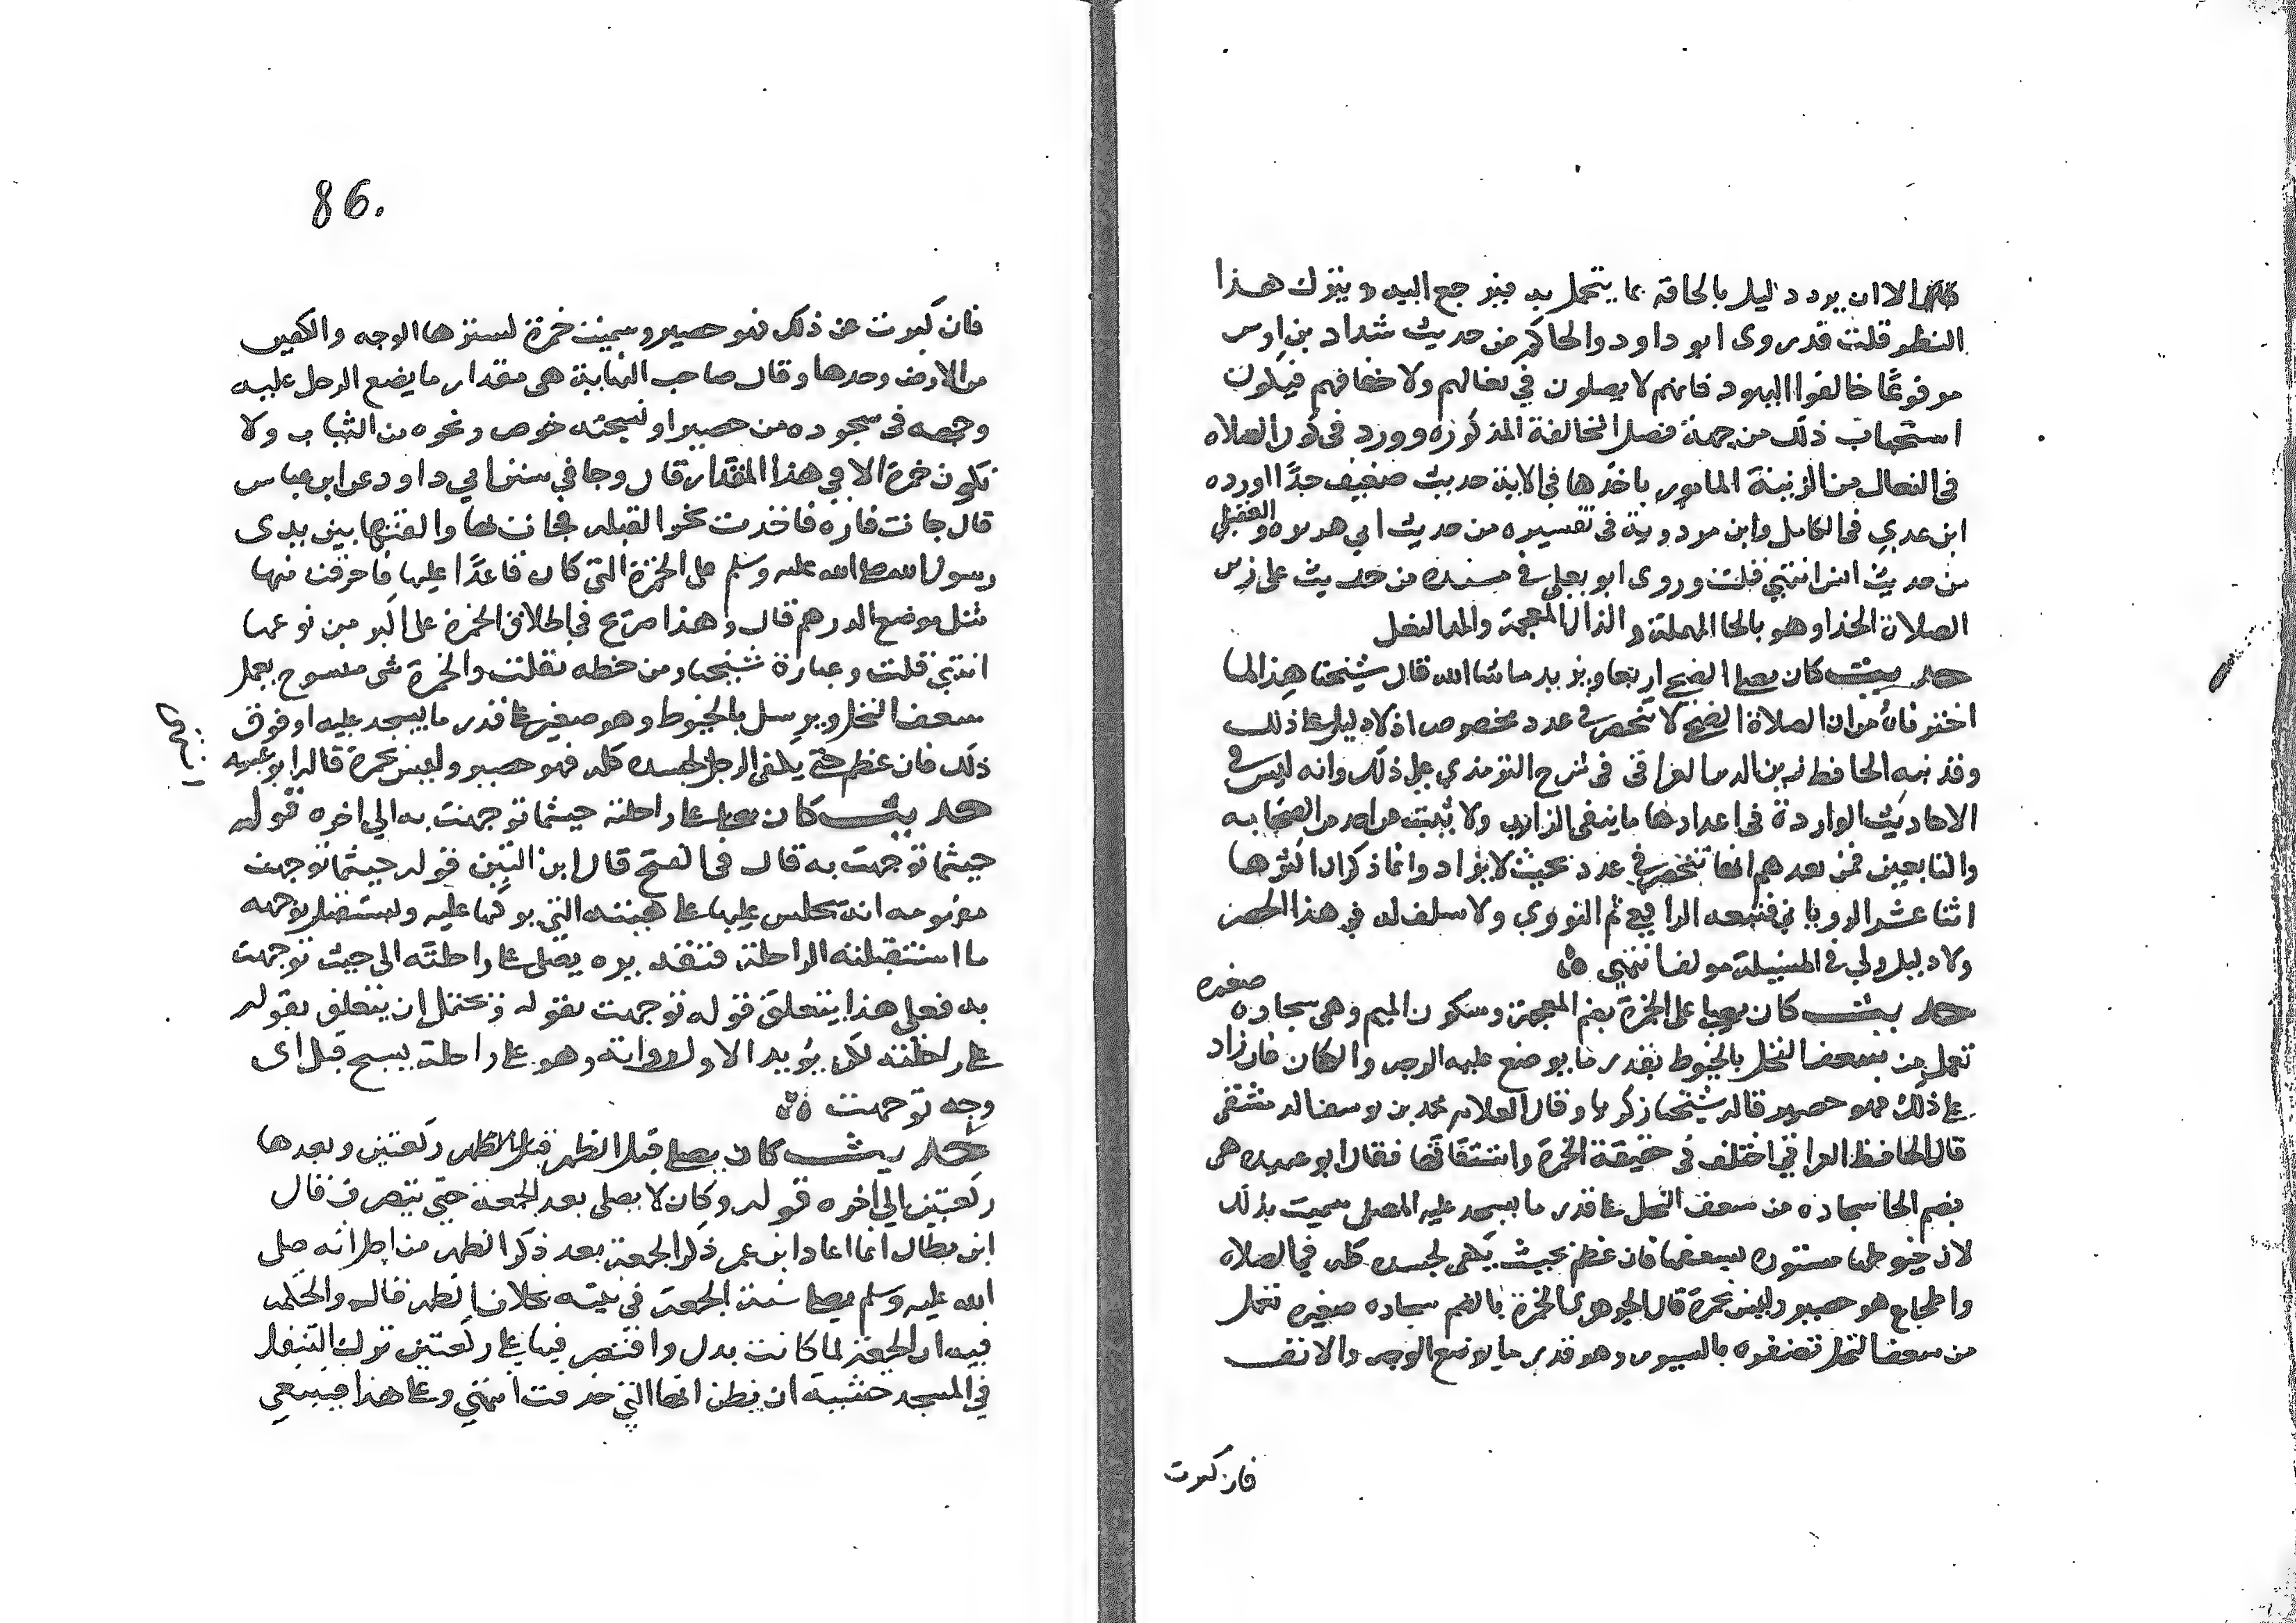 الا ان يرد دليل بالحاقه بما يتجمل به فيرجع اليه ويترك هذا
النظر قلت قد روى ابو داود والحاكم من حديث شداد بن اوس
مرفوعًا خالفوا اليهود فانهم لا يصلون في نعالهم ولا خفافهم فيكون
استحباب ذلك من جهة قصد المخالفة المذكورة وورد في كون الصلاه
في النعال من الزينة المامور باخذها في الاية حديث ضعيف جدًّا اورده
ابن عدي في الكامل وابن مردوية في تفسيره من حديث ابي هريره والعقيلي
من حديث انس انتهي قلت وروى ابو يعلى في مسنده من حديث على زين
الصلاة الحذا وهو بالحا المهملة والذال المعجمة والمد النعل
حديث كان يصلي الضحي اربعا ويزيد ما شا الله قال شيخنا هذا لما
اختر فاه من ان الصلاة الضحي لا تنحصر في عدد مخصوص اذ لا دليل على ذلك
وقد نبه الحافظ زين الدين العراقي في شرح الترمذي على ذلك وانه ليس في
الاحاديث الواردة في اعدادها ما ينفي الزايد ولا ثبت عن احد من الصحابه
والتابعين فمن بعدهم انها تنحصر في عدد بحيث لا يزاد وانما ذكر ان اكثرها
اثنا عشر الروياني فتبعه الرافعي ثم النووي ولا سلف له في هذا الحصر
ولا دليل ولي في المسيلة مولف انتهي
حديث كان يصلي على الخمرة بضم المعجمة وسكون الميم وهي سجاده صغيره
تعمل من سعف النخل بالخيوط بقدر ما يوضع عليه الوجه والكفان فان زاد
على ذلك فهو حصير قاله شيخنا زكريا وقال العلامه محمد بن يوسف الدمشقي
قال الحافظ العراقي اختلف في حقيقة الخمرة واشتقاقها فقال ابو عبيد هي
بضم الخا سجاده من سعف النخل على قدر ما يسجد عليه المصلي سميت بذلك
لان خيوطها مستوره بسعفها فان عظم بحيث يكفي لجسده كله في الصلاه
واضطجاع هو حصير وليس بخمرة قال الجوهري الخمرة بالضم سجاده صغيره تعمل
من سعف النخل تضفره بالسيور وهو قدر ما يوضع الوجه والانف
فان كبرت
86.
فان كبرت عن ذلك فهو حصير وسميت خمرة لسترها الوجه والكفين
من الارض وحدها وقال صاحب النهاية هي مقدار ما يضع الرجل عليه
وجهه في سجوده من حصير او نسيجة خوص ونحوه من الثياب ولا
تكون خمرة الا في هذا المقدار قال وجا في سنن ابي داود عن ابن عباس
قال جات فاره فاخذت تجر الفتيله فجات بها والقتها بين يدى
رسول الله صلى الله عليه وسلم على الخمرة التي كان قاعدًا عليها فاحرقت منها
مثل موضع الدرهم قال وهذا صريح في اطلاق الخمرة على الكبير من نوعها
انتهي قلت وعبارة شيخنا ومن خطه نقلت والخمرة شى منسوج يعمل
سعف النخل ويرسل بالخيوط وهو صغير على قدر ما يسجد عليه او فوق
ذلك فان عظم حتى يكفي الرجل لجسده كله فهو حصير وليس بخمرة قاله ابو عبيد
حديث كان يصلي على راحلته حيثما توجهت به الي اخره قوله
حيثما توجهت به قال في الفتح قال ابن التين قوله حيثما توجهت
مفهومه انه يجلس عليها على هيئته التي يركبها عليه ويستقبل بوجهه
ما استقبلته الراحلة فتقديره يصلي على راحلته الى حيث توجهت
به فعلى هذا يتعلق قوله توجهت بقوله ويحتمل ان يتعلق بقوله
على راحلته لكن يؤيد الاول رواية وهو على راحلته يسبح قبل اى
وجه توجهت
حديث كان يصلي قبل الظهر ركعتين وبعدها
ركعتين الي اخره قوله وكان لا يصلى بعد الجمعة حتى ينصرف قال
ابن بطال انما اعاد ابن عمر ذكر الجمعة بعد ذكر الظهر من اجل انه صلى
الله عليه وسلم يصلي سنة الجمعة في بيته بخلاف الظهر قال والحكمه
فيه ان الجمعة لما كانت بدل واقتصر فيها على ركعتين ترك التنفل
في المسجد خشية ان يظن انها التي حذفت انتهي وعلى هذا فينبغي